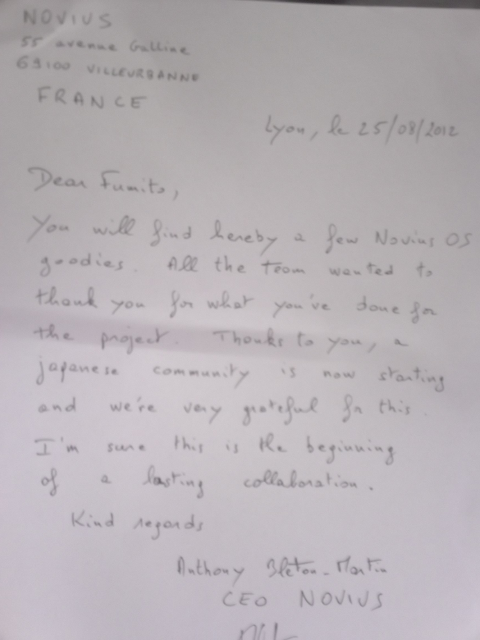 NOVIUS
55 avenue Galline
69100 VILLEURBANNE
FRANCE
Lyon, le 25/08/2012
Dear Fumito,
You will find hereby a few Novius OS
goodies. All the team wanted to
thank you for what you've done for
the project. Thanks to you, a
japanese community is now starting
and we're very grateful for this.
I'm sure this is the beginning
of a lasting collaboration.
Kind regards
Anthony Bleton-Martin
CEO NOVIUS